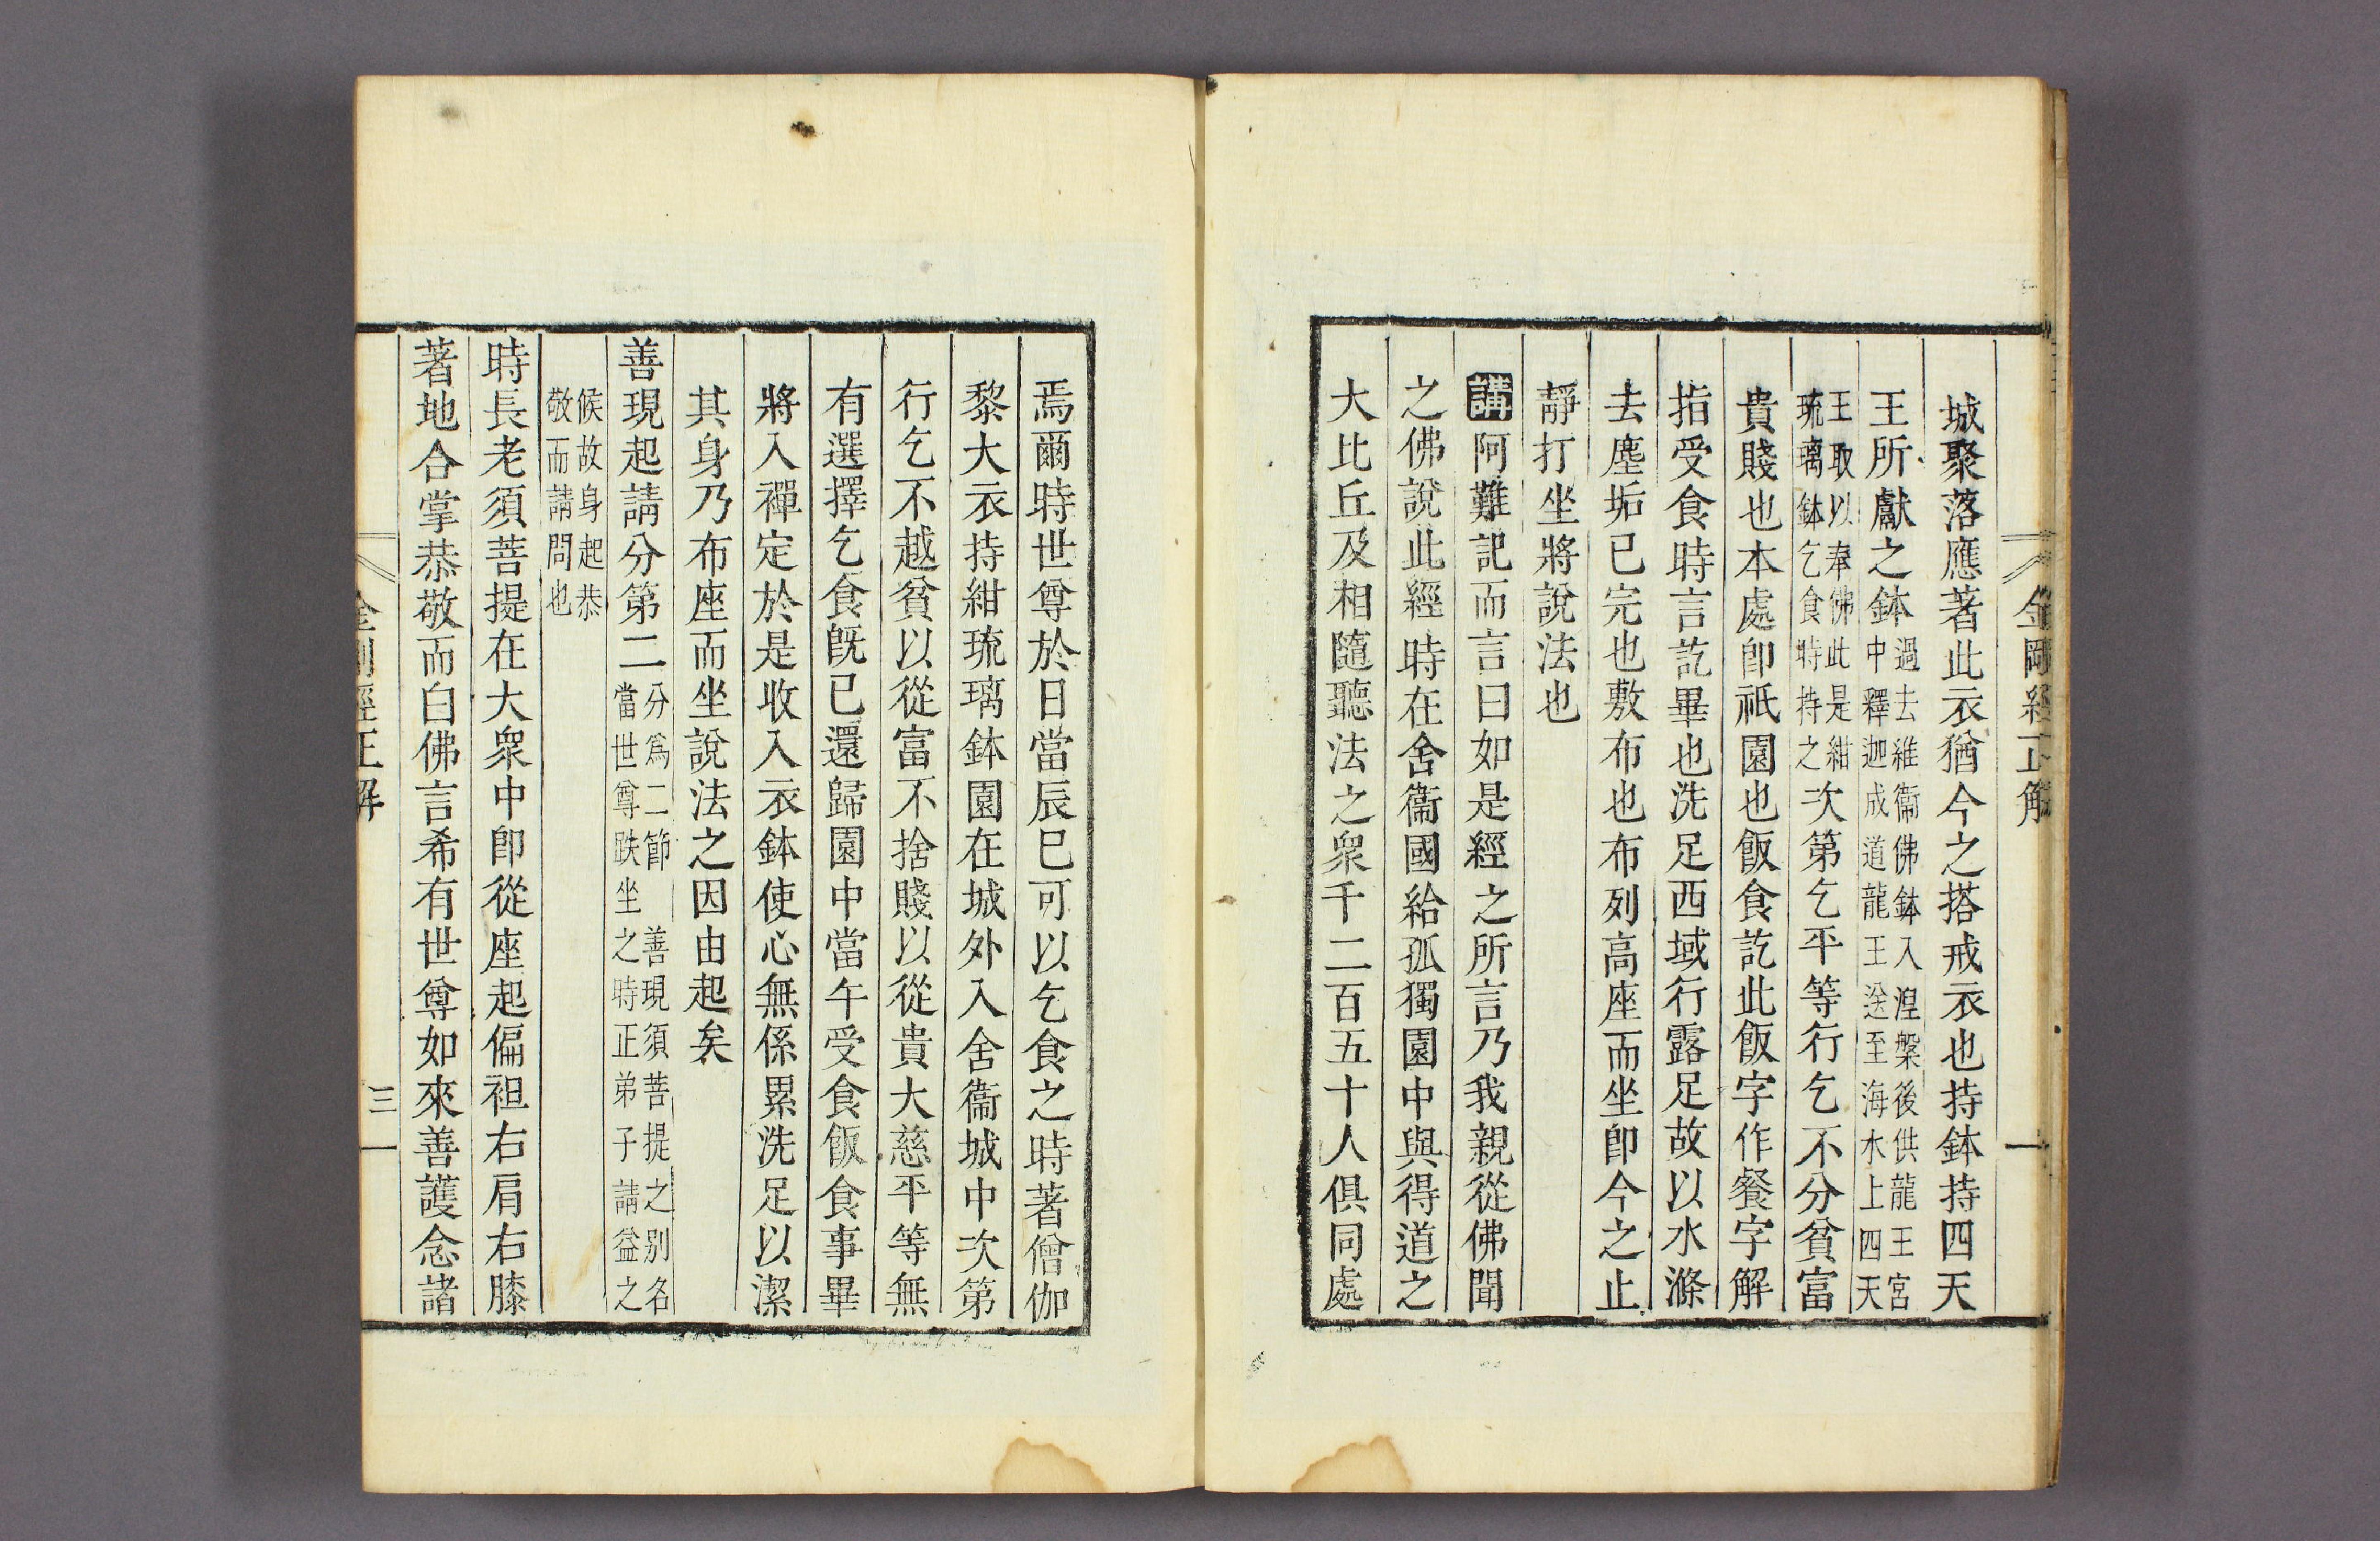 金剛經正解
城聚落應著此衣猶今之搭戒衣也持鉢持四天
王所獻之鉢過去維衞佛鉢入湼槃後供龍王宮中釋迦成道龍王送至海水上四天
王取以奉佛此是紺琉璃鉢乞食時持之次第乞平等行乞不分貧富
貴賤也本處卽祇園也飯食訖此飯字作餐字解
指受食時言訖畢也洗足西域行露足故以水滌
去塵垢已完也敷布也布列高座而坐卽今之止
靜打坐將說法也
講阿難記而言曰如是經之所言乃我親從佛聞
之佛說此經時在舍衞國給孤獨園中與得道之
大比丘及相隨聽法之衆千二百五十人俱同處
焉爾時世尊於日當辰巳可以乞食之時著僧伽
黎大衣持紺琉璃鉢園在城外入舍衞城中次第
行乞不越貧以從富不捨賤以從貴大慈平等無
有選擇乞食旣已還歸園中當午受食飯食事畢
將入禪定於是收入衣鉢使心無係累洗足以潔
其身乃布座而坐說法之因由起矣
善現起請分第二分爲二節 善現須菩提之別名當世尊趺坐之時正弟子請益之
候故身起恭敬而請問也
時長老須菩提在大衆中卽從座起偏袒右肩右膝
著地合掌恭敬而白佛言希有世尊如來善護念諸
金剛經正解
三